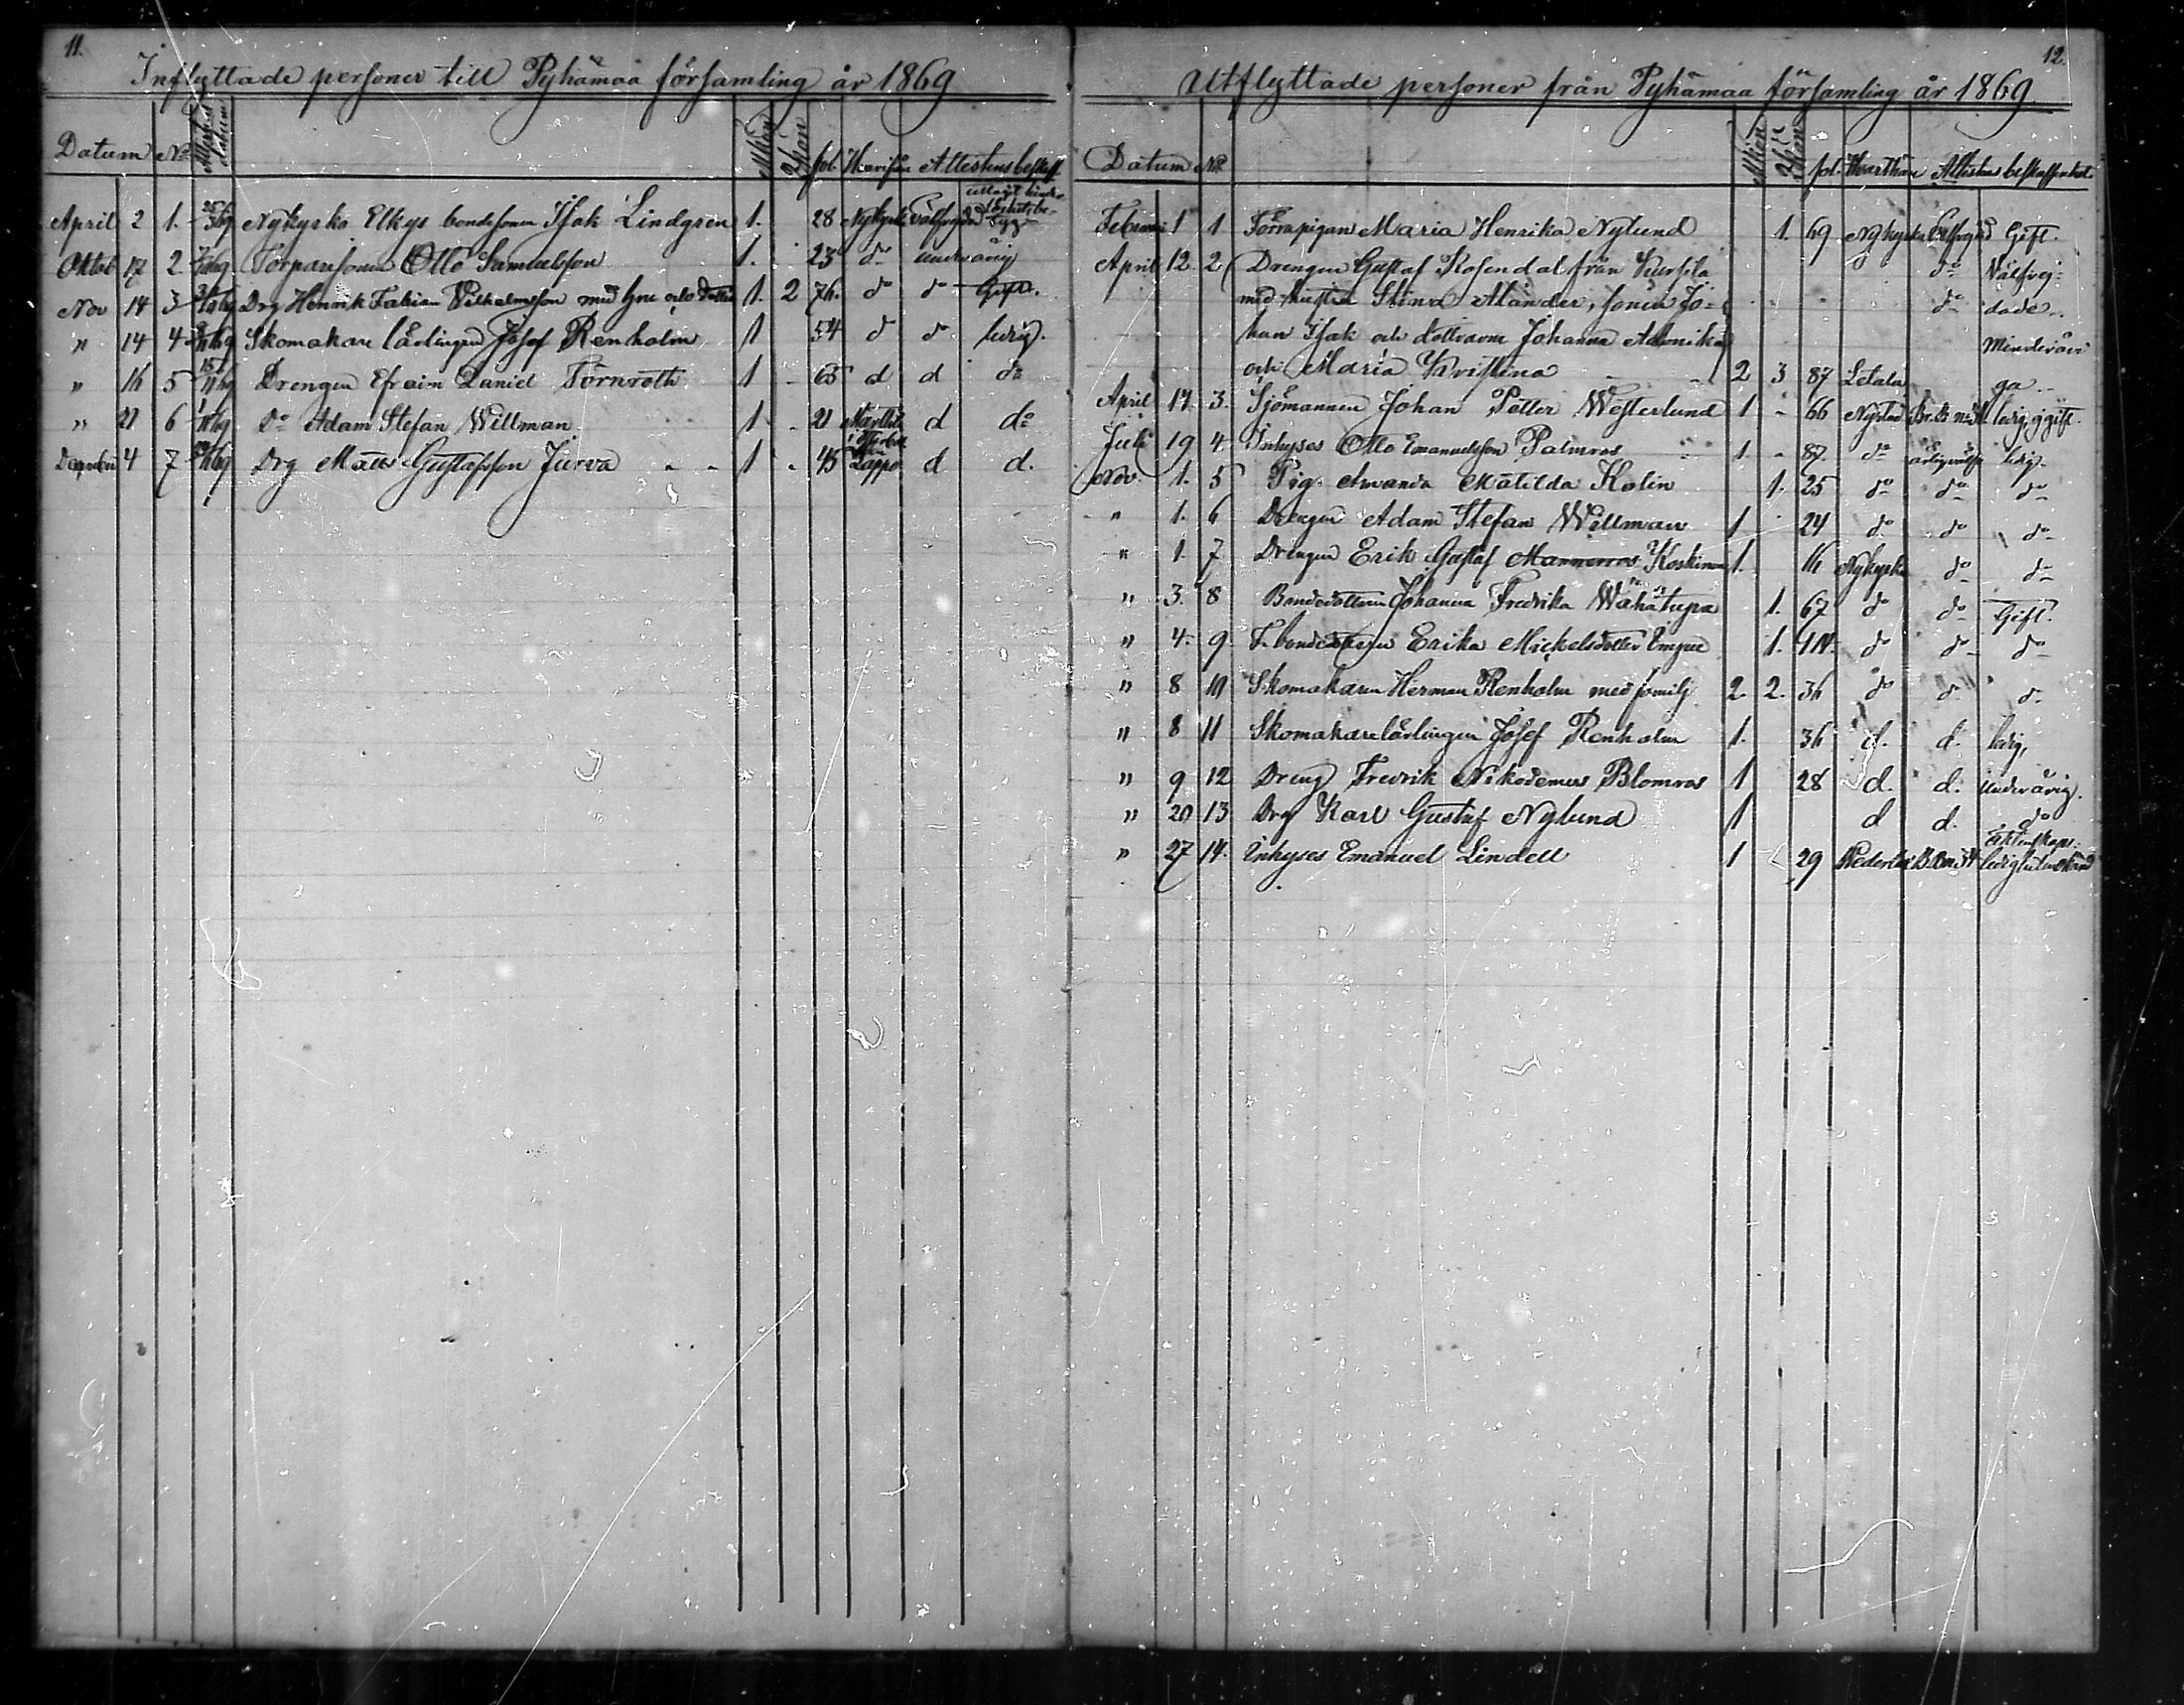 11.
Inflyttade personer till Pyhämaa församling år 1869
Datum No Attestens datum Mkön Qkön fol. Hvarifrån Attestens beskaff.
April 2 1. Nykyrko Elkys bondesonen Isak Lindgren 1. 28 Nykyrko
Oktob 17 2. Torparesonen Otto Samuelsson 1. 23 do underårig
Nov 14 3 Drg Henrik Fabian Vilhelmsson med hru och dotter 1. 2 76. do do Gift.
" 14 4 Skomakare lärlingen Josef Renholm 1 54 d do ledig.
" 16 5 Drengen Efraim Daniel Törnroth 1 - 65 d d do
" 21 6 Do Adam Stefan Willman 1 - 21 d do
December 4 7 Drg Matts Gustafsson Jurva - - 1 - 45 Lappo d d.
12.
Utflyttade personer från Pyhämaa församling år 1869.
Datum No Mkön Qkön fol. Hvarthän Attestens beskaffenhet
Februari 1 1 Torrapigan Maria Henrika Nylund 1. 69 Nykyrko Gift.
April 12. 2 Drengen Gustaf Rosendal från Kursila do Välfrej-
med hustru Stina Alander, sonen Jo- do dade.
han Isak och döttrarne Johanna Minderåri
och Maria Kristina 2 3 87 Letala ga
April 14. 3. Sjömannen Johan Petter Westerlund 1 - 66 Nystad ledig, ogift.
Juli 19 4. Inhyses Otto Emanuelsson Palmros 1 - 87 do ledig
Nov. 1. 5 Pig. Amanda Matilda Kolin 1. 25 do do do
" 1. 6 Drengen Adam Stefan Willman 1 24 do do do
" 1. 7 Drengen Erik Gustaf Mannerros Koskinen 1. 16 Nykyrko do do
" 3. 8 Bondedottren Johanna Fredrika Wähätupa 1. 67 do do Gift.
" 4. 9 Erika Mickelsdotter 1. do do do
" 8 10 Skomakaren Herman Renholm med familj 2. 2. 36 do d. d.
" 8 11 Skomakarelärlingen Josef Renholm 1. 36 d. d. ledig,
" 9 12 Dreng Fredrik Nikodemus Blomros 1 28 d. d. underårig.
" 20 13 Drg Karl Gustaf Nylund 1 d d. do
" 27 14. Inhyses Emanuel Lindell 1 29